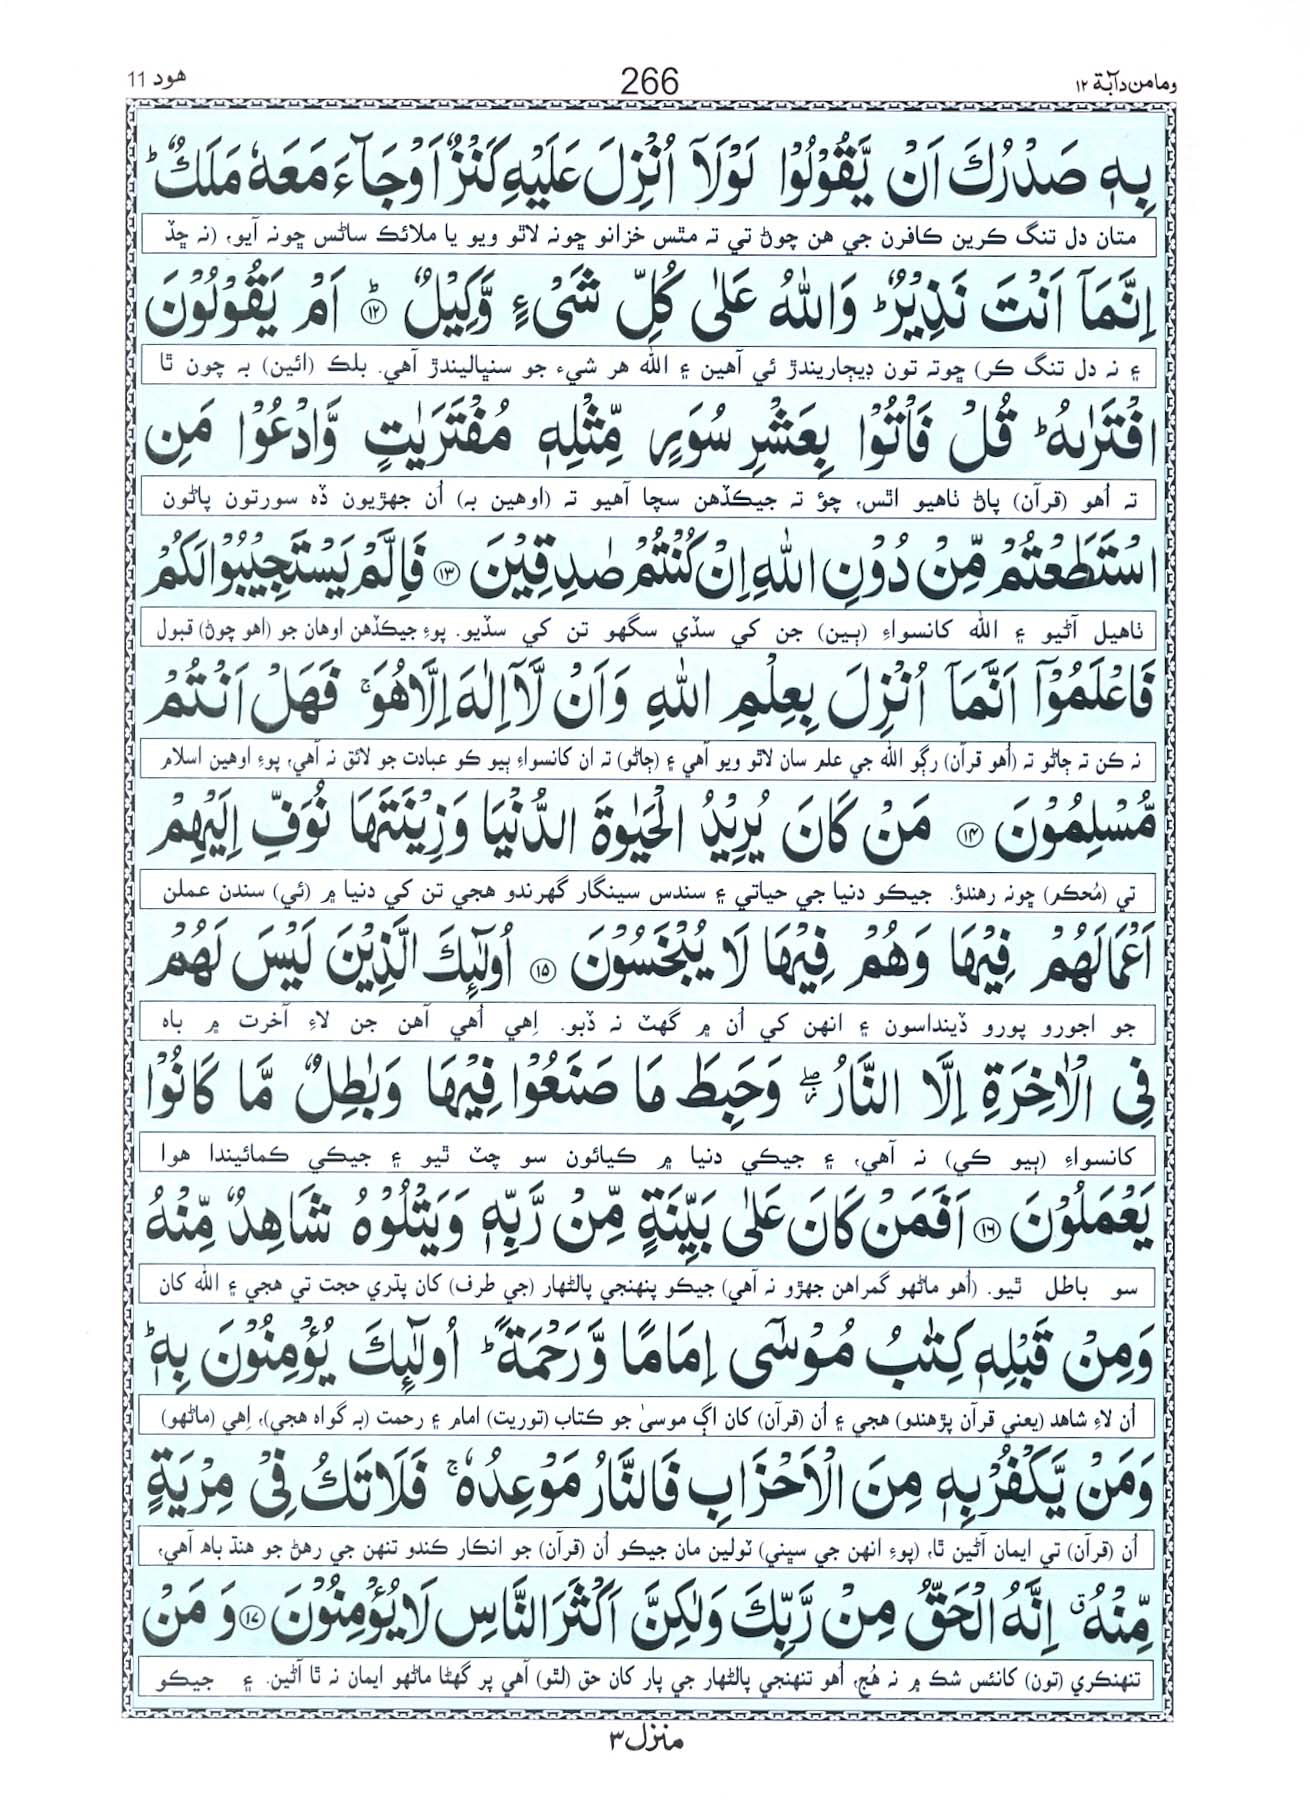 ومامن دآبة ١٢ 266 هود 11
بِهٖ صَدْرُكَ اَنْ يَّقُوْلُوْا لَوْلَاۤ اُنْزِلَ عَلَيْهِ كَنْزٌ اَوْ جَآءَ مَعَهٗ مَلَكٌ ؕ
متان دل تنگ ڪرين ڪافرن جي هن چوڻ تي ته مٿس خزانو ڇونہ لاٿو ويو يا ملائڪ ساڻس ڇونہ آيو، (نہ ڇڏ
اِنَّمَاۤ اَنْتَ نَذِيْرٌ ؕ وَاللّٰهُ عَلٰى كُلِّ شَىْءٍ وَّكِيْلٌ ؕ ﴿۱۲﴾ اَمْ يَقُوْلُوْنَ
۽ نہ دل تنگ ڪر) ڇوتہ تون ڊيڄاريندڙ ئي آهين ۽ الله هر شيء جو سنڀاليندڙ آهي. بلڪ (ائين) بہ چون ٿا
افْتَرٰىهُ ؕ قُلْ فَاْتُوْا بِعَشْرِ سُوَرٍ مِّثْلِهٖ مُفْتَرَيٰتٍ وَّادْعُوْا مَنِ
تہ اُهو (قرآن) پاڻ ٺاهيو اٿس، چؤ تہ جيڪڏهن سچا آهيو تہ (اوهين بہ) اُن جهڙيون ڏه سورتون پاڻون
اسْتَطَعْتُمْ مِّنْ دُوْنِ اللّٰهِ اِنْ كُنْتُمْ صٰدِقِيْنَ ﴿۱۳﴾ فَاِلَّمْ يَسْتَجِيْبُوْا لَكُمْ
ٺاهيل آڻيو ۽ الله کانسواءِ (ٻين) جن کي سڏي سگهو تن کي سڏيو. پوءِ جيڪڏهن اوهان جو (اهو چوڻ) قبول
فَاعْلَمُوْۤا اَنَّمَاۤ اُنْزِلَ بِعِلْمِ اللّٰهِ وَاَنْ لَّاۤ اِلٰهَ اِلَّا هُوَ ۚ فَهَلْ اَنْتُمْ
نہ ڪن تہ ڄاڻو تہ (اُهو قرآن) رڳو الله جي علم سان لاٿو ويو آهي ۽ (ڄاڻو) تہ ان کانسواءِ ٻيو ڪو عبادت جو لائق نہ آهي، پوءِ اوهين اسلام
مُّسْلِمُوْنَ ﴿۱۴﴾ مَنْ كَانَ يُرِيْدُ الْحَيٰوةَ الدُّنْيَا وَزِيْنَتَهَا نُوَفِّ اِلَيْهِمْ
تي (مُحڪم) ڇونہ رهندؤ. جيڪو دنيا جي حياتي ۽ سندس سينگار گهرندو هجي تن کي دنيا ۾ (ئي) سندن عملن
اَعْمَالَهُمْ فِيْهَا وَهُمْ فِيْهَا لَا يُبْخَسُوْنَ ﴿۱۵﴾ اُولٰٓئِكَ الَّذِيْنَ لَيْسَ لَهُمْ
جو اجورو پورو ڏينداسون ۽ انهن کي اُن ۾ گهٽ نہ ڏبو. اِهي اُهي آهن جن لاءِ آخرت ۾ باه
فِى الْاٰخِرَةِ اِلَّا النَّارُ ۖ وَحَبِطَ مَا صَنَعُوْا فِيْهَا وَبٰطِلٌ مَّا كَانُوْا
کانسواءِ (ٻيو ڪي) نہ آهي، ۽ جيڪي دنيا ۾ ڪيائون سو چٽ ٿيو ۽ جيڪي ڪمائيندا هوا
يَعْمَلُوْنَ ﴿۱۶﴾ اَفَمَنْ كَانَ عَلٰى بَيِّنَةٍ مِّنْ رَّبِّهٖ وَيَتْلُوْهُ شَاهِدٌ مِّنْهُ
سو باطل ٿيو. (اُهو ماڻهو گمراهن جهڙو نہ آهي) جيڪو پنهنجي پالڻهار (جي طرف) کان پڌري حجت تي هجي ۽ الله کان
وَمِنْ قَبْلِهٖ كِتٰبُ مُوْسٰٓى اِمَامًا وَّرَحْمَةً ؕ اُولٰٓئِكَ يُؤْمِنُوْنَ بِهٖ ؕ
اُن لاءِ شاهد (يعني قرآن پڙهندو) هجي ۽ اُن (قرآن) کان اڳ موسيٰ جو ڪتاب (توريت) امام ۽ رحمت (بہ گواه هجي)، اِهي (ماڻهو)
وَمَنْ يَّكْفُرْ بِهٖ مِنَ الْاَحْزَابِ فَالنَّارُ مَوْعِدُهٗ ۚ فَلَا تَكُ فِىْ مِرْيَةٍ
اُن (قرآن) تي ايمان آڻين ٿا، (پوءِ انهن جي سڀني) ٽولين مان جيڪو اُن (قرآن) جو انڪار ڪندو تنهن جي رهڻ جو هنڌ باه آهي،
مِّنْهُ ۗ اِنَّهُ الْحَقُّ مِنْ رَّبِّكَ وَلٰكِنَّ اَكْثَرَ النَّاسِ لَا يُؤْمِنُوْنَ ﴿۱۷﴾ وَمَنْ
تنهنڪري (تون) کانئس شڪ ۾ نہ هُج، اُهو تنهنجي پالڻهار جي پار کان حق (لٿو) آهي پر گهڻا ماڻهو ايمان نہ ٿا آڻين. ۽ جيڪو
منزل ٣